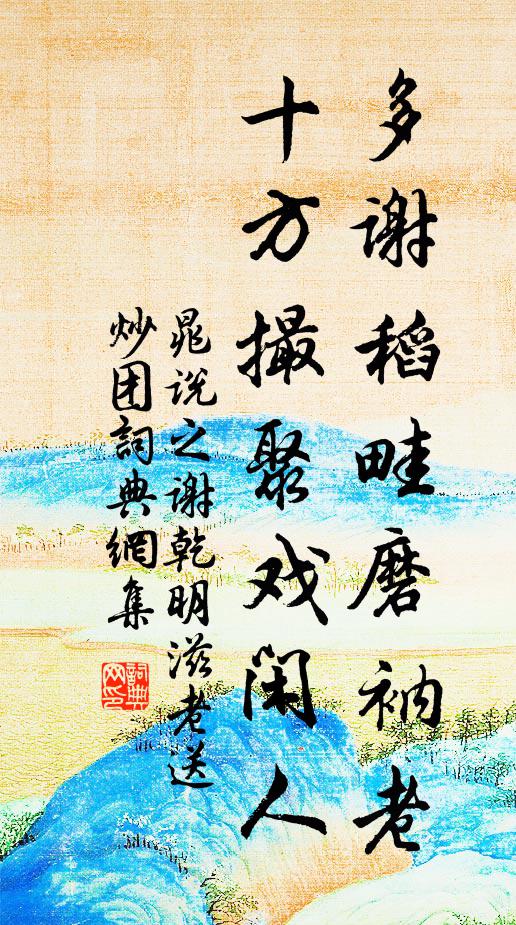 多谢稻畦磨衲老
十方撮聚戏闲人
晁说之谢乾明滋老送
炒团詞典網集
詞典
网印